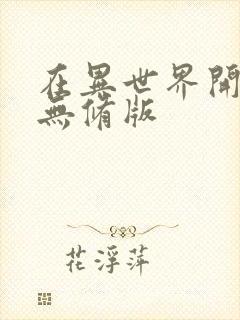 在異世界開
無修版
花浮萍